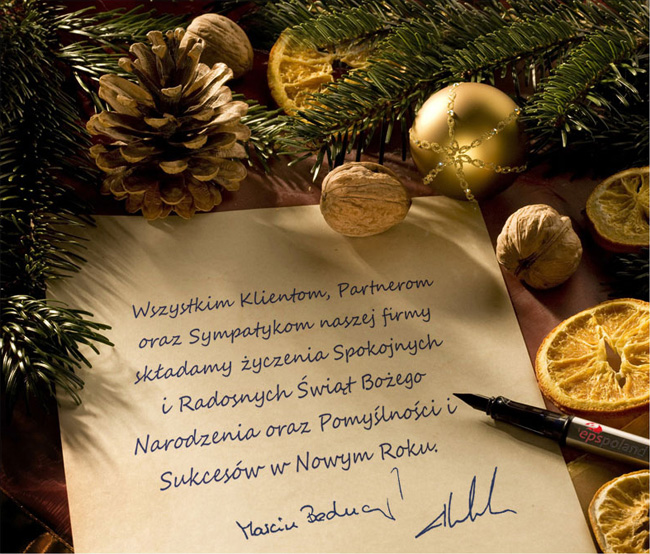 Wszystkim Klientom, Partnerom
oraz Sympatykom naszej firmy
składamy życzenia Spokojnych
i Radosnych Świąt Bożego
Narodzenia oraz Pomyślności i
Sukcesów w Nowym Roku.
Marcin
epspoland